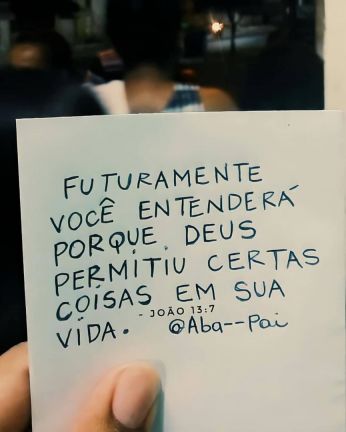 FUTURAMENTE
VOCÊ ENTENDERÁ
PORQUE DEUS
PERMITIU CERTAS
COISAS EM SUA
- JOÃO 13:7
VIDA. @Aba--Pai